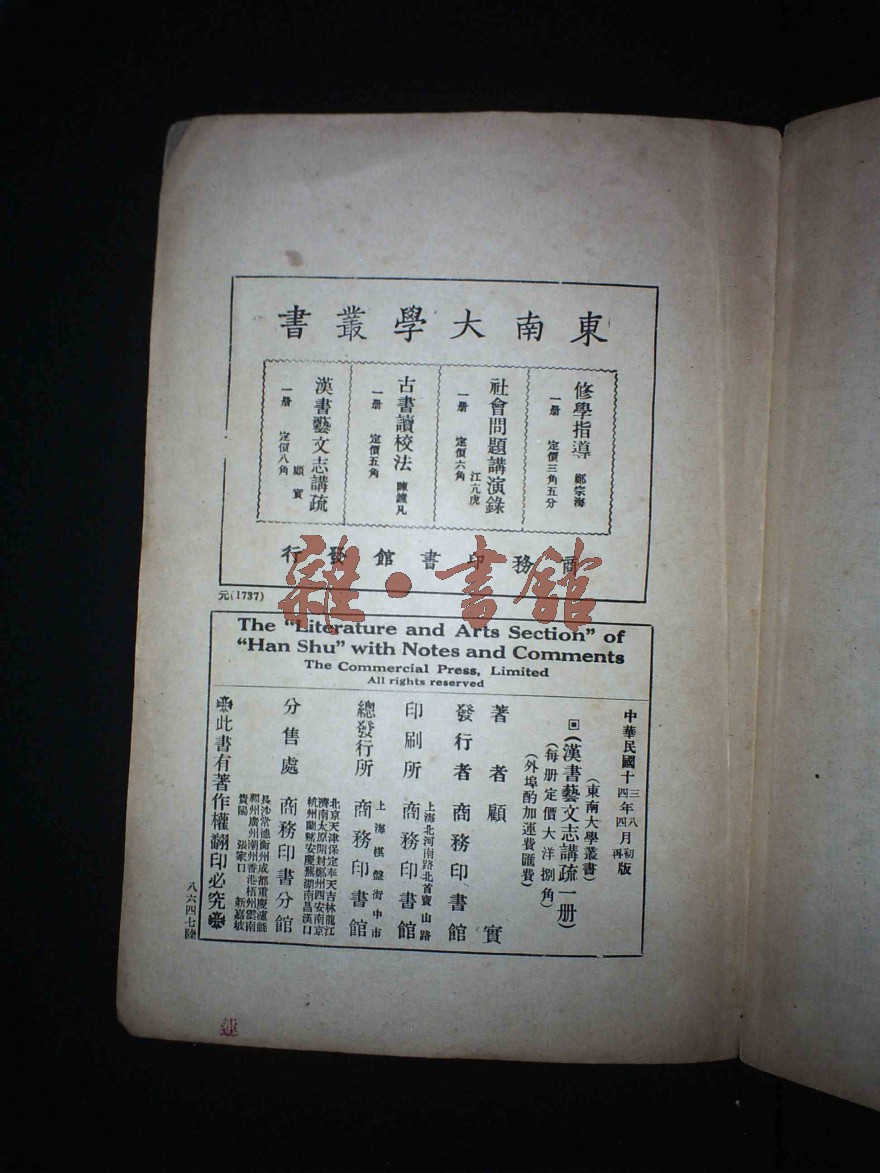 東南大學叢書
修學指導 鄭宗海
一册 定價三角五分
社會問題講演錄 江亢虎
一册 定價六角
古書讀校法 陳鐘凡
一册 定價五角
漢書藝文志講疏 顧實
一册 定價八角
商務印書館發行
元(1737)
雜·書館
The "Literature and Arts Section" of
"Han Shu" with Notes and Comments
The Commercial Press, Limited
All rights reserved
中華民國十三年八月初版
四 四 再
(東南大學叢書)
(漢書藝文志講疏一册)
(每册定價大洋捌角)
(外埠酌加運費匯費)
著者 顧實
發行者 商務印書館
印刷所 上海北河南路北首寶山路 商務印書館
總發行所 上海棋盤街中市 商務印書館
分售處 商務印書分館
北京天津保定奉天吉林龍江
濟南太原開封鄭州西安南京
杭州蘭谿安慶蕪湖南昌漢口
長沙常德衡州成都重慶瀘縣
福州廣州潮州香港梧州雲南
貴陽 張家口 新嘉坡
此書有著作權翻印必究
八六四七陸
蓮